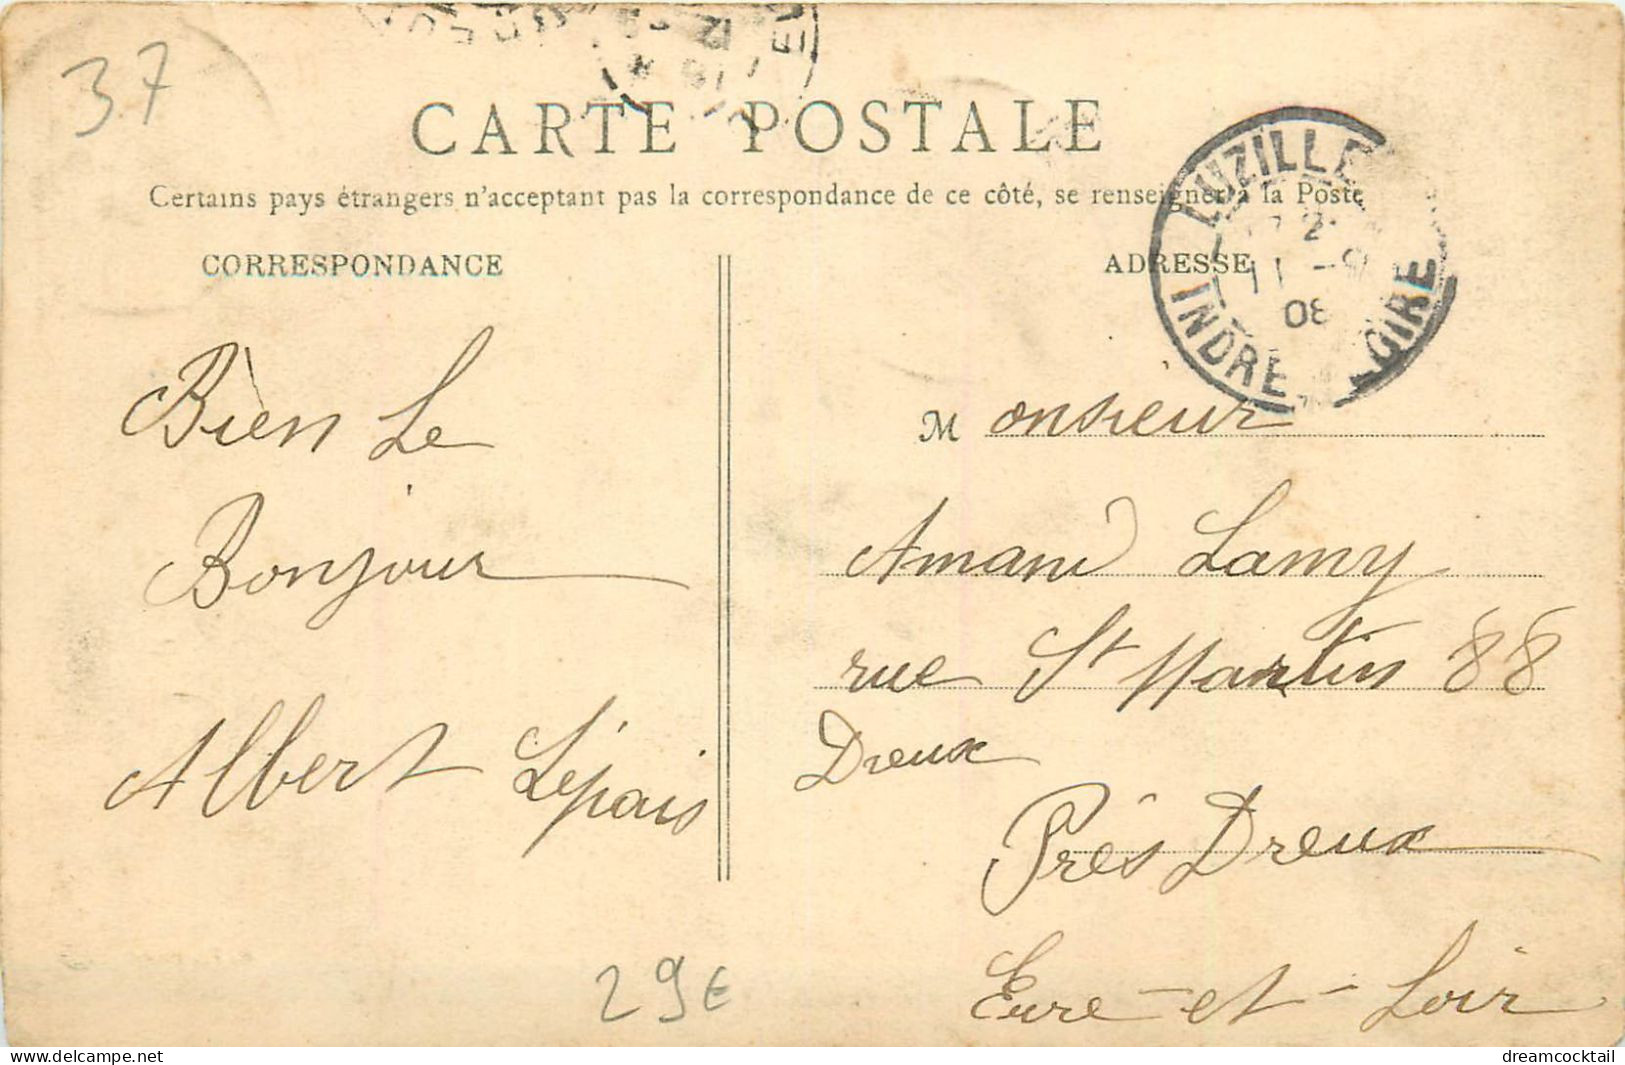 37
CARTE POSTALE
Certains pays étrangers n'acceptant pas la correspondance de ce côté, se renseigner à la Poste
CORRESPONDANCE
ADRESSE
LUZILLE
11 -9
08
INDRE LOIRE
Bien Le
Bonjour
Albert Lépais
Monsieur
Amand Lamy
rue St Martin 88
Dreux
Près Dreux
Eure-et-Loir
29€
www.delcampe.net
dreamcocktail